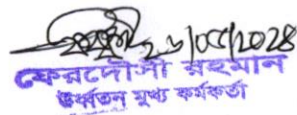 ২৬/০৫/2024
ফেরদৌসী রহমান
উর্ধ্বতন মুখ্য কর্মকর্তা